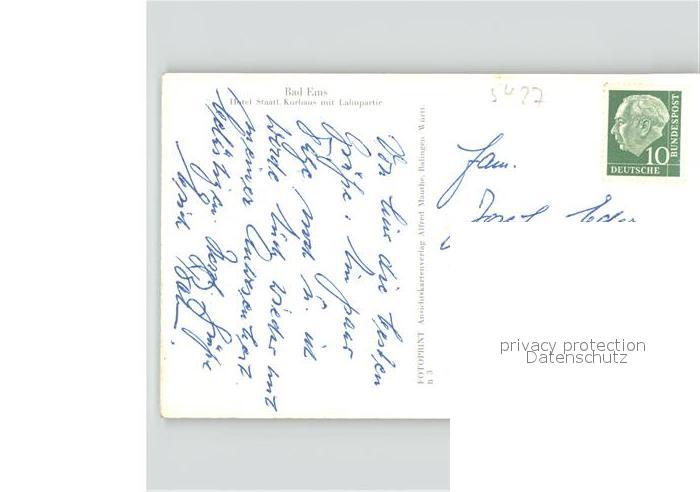 Bad Ems
Hotel Staatl. Kurhaus mit Lahnpartie
Von hier die besten
Grüße. Ein paar
Tage noch u. ich
werde Dich wieder mit
meiner Anwesenheit
Grüße
FOTOPRINT Ansichtskartenverlag Alfred Mauthe, Balingen Württ.
B 3
5427
Fam.
Josef
10
DEUTSCHE
BUNDESPOST
privacy protection
Datenschutz